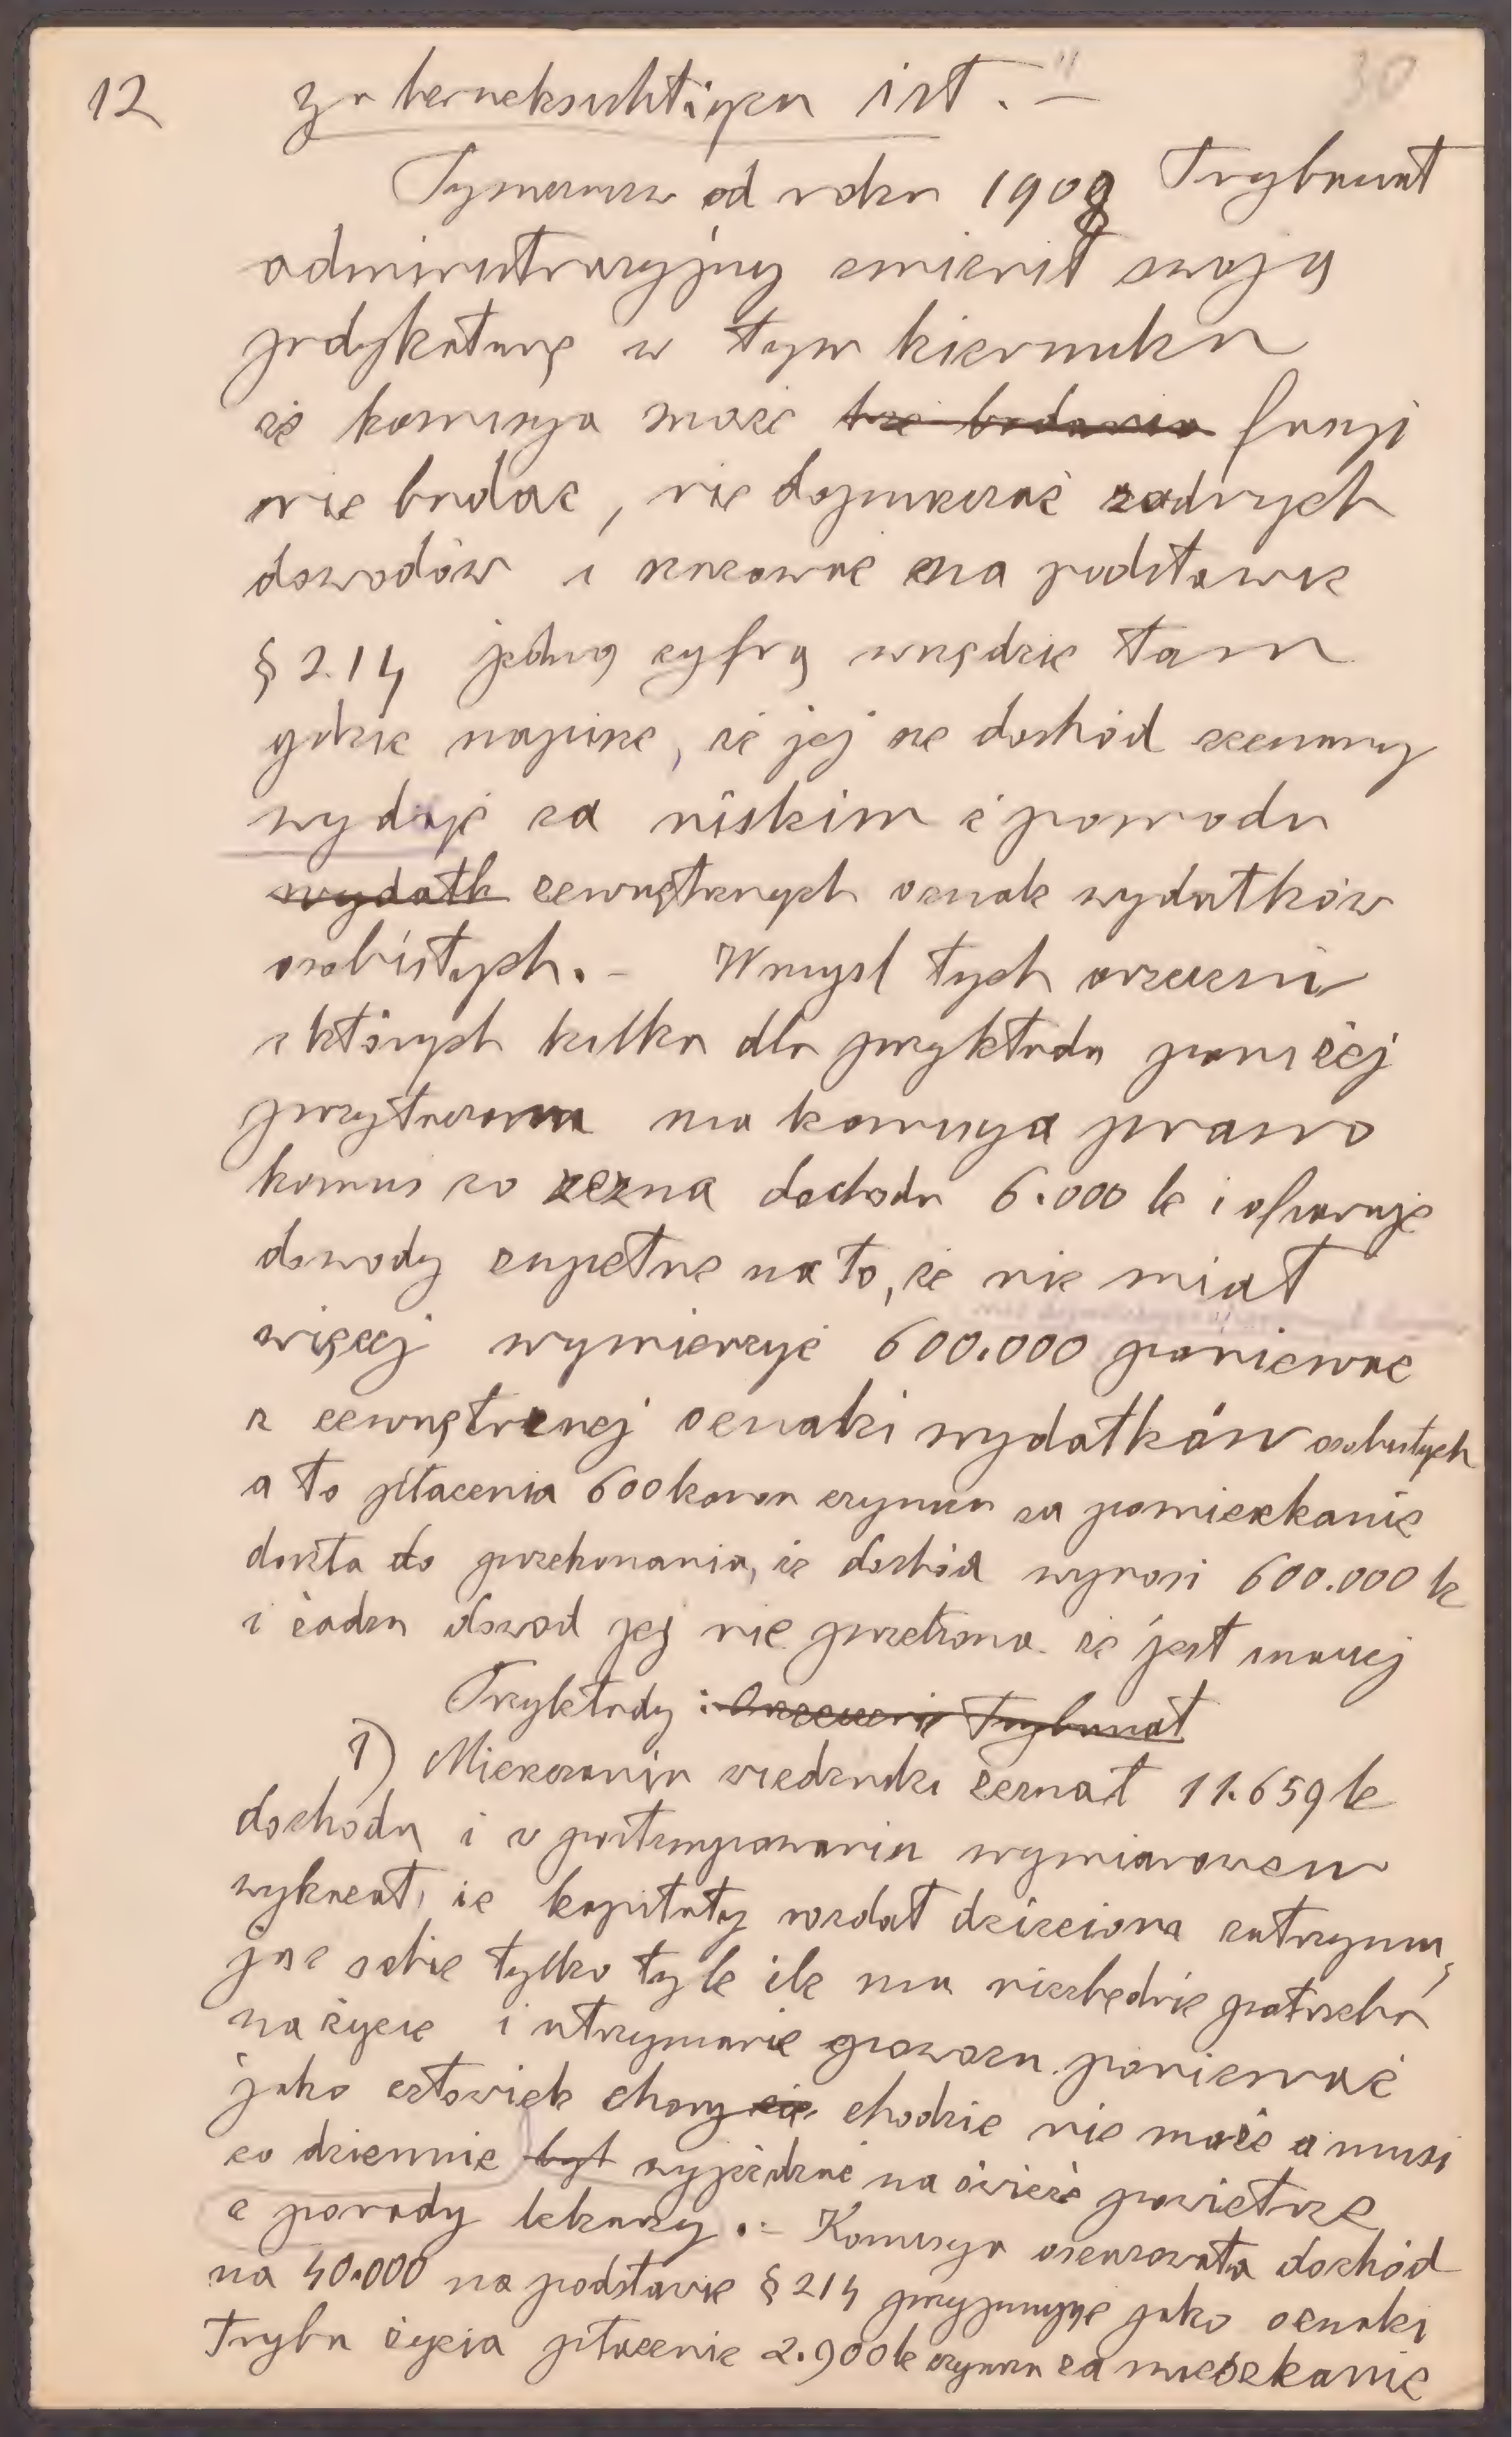 12 zu berueksichtigen ist. — "
30
Tymczasem od roku 1909 Trybunał
administracyjny zmienił swoją
judykaturę w tym kierunku
że komisya może też badania fasyi
nie badać, nie dopuszczać żadnych
dowodów i szacować na podstawie
§ 214 jedną cyfrą wszędzie tam
gdzie napisze, że jej se dochód zeznany
wydaje za niskim z powodu
wydatk zewnętrznych oznak wydatków
osobistych. – W myśl tych orzeczeń
z których kilka dla przykładu poniżej
przytaczam ma komisya prawo
komuś co zezna dochodu 6.000 k i ofiaruje
dowody zupełne na to, że nie miał
więcej wymierzyć 600.000 ponieważ
z zewnętrznej oznaki wydatków osobistych
a to płacenia 600 koron czynszu za pomieszkanie
doszła do przekonania, że dochód wynosi 600.000 k
i żaden dowód jej nie przekona że jest inaczej
Przykłady : Orzeczenie Trybunał
1) Mieszczanin wiedeński zeznał 11.659 k
dochodu i w postępowaniu wymiarowem
wykazał, że kapitały rozdał dzieciom zatrzymu,
jąc sobie tylko tyle ile mu niezbędnie potrzeba
na życie i utrzymanie powozu ponieważ
jako człowiek chory się chodzić nie może a musi
co dziennie być wyjeżdżać na świeże powietrze
z porady lekarzy. – Komisya oszacowała dochód
na 40.000 na podstawie § 214 przyjmując jako oznaki
trybu życia płacenie 2.900 k czynszu za mieszkanie